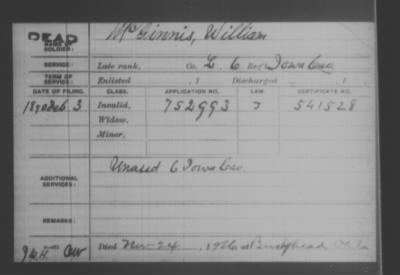 DEAD
McGinnis, William
NAME OF SOLDIER:
SERVICE: Late rank, Co. L, 6 Reg't Iowa Cav
TERM OF SERVICE: Enlisted , 1 Discharged , 1
DATE OF FILING. CLASS. APPLICATION NO. LAW. CERTIFICATE NO.
1890 Feb 3 Invalid, 752993 J 541528
Widow,
Minor,
ADDITIONAL SERVICES: Unassd 6 Iowa Cav.
REMARKS:
Died Nov-24, 1926 at Bushyhead Okla